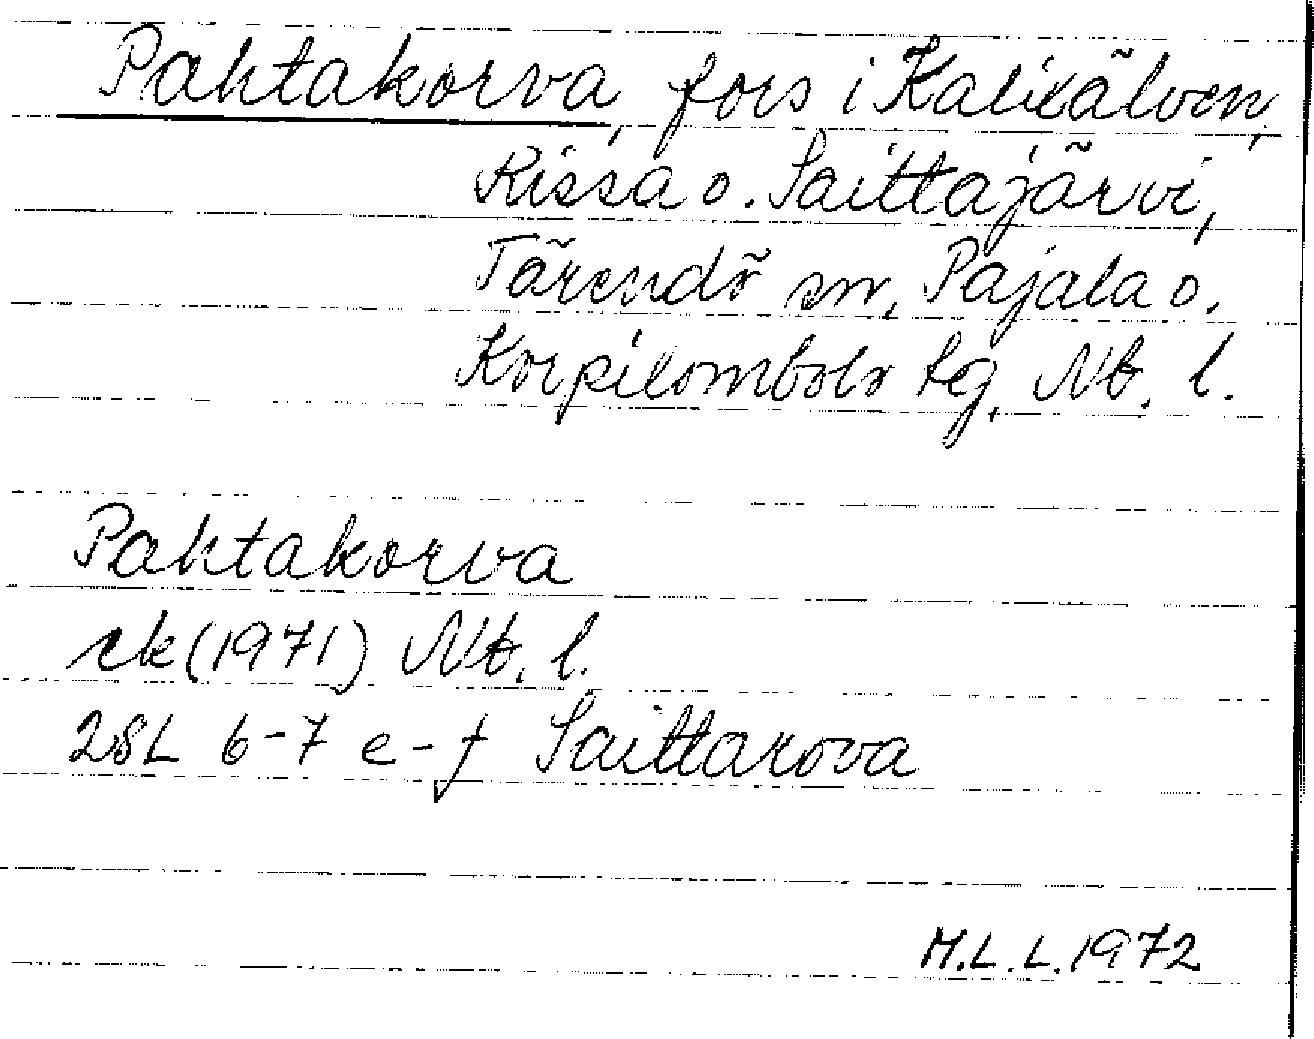 Pahtakorva, fors i Kalixälven,
Kissa o. Saittajärvi,
Tärendö sn, Pajala o.
Korpilombolo tg, Nb. l.
Pahtakorva
ek (1971) Nb. l.
28L 6-7 e-f Saittarova
M.L.L. 1972